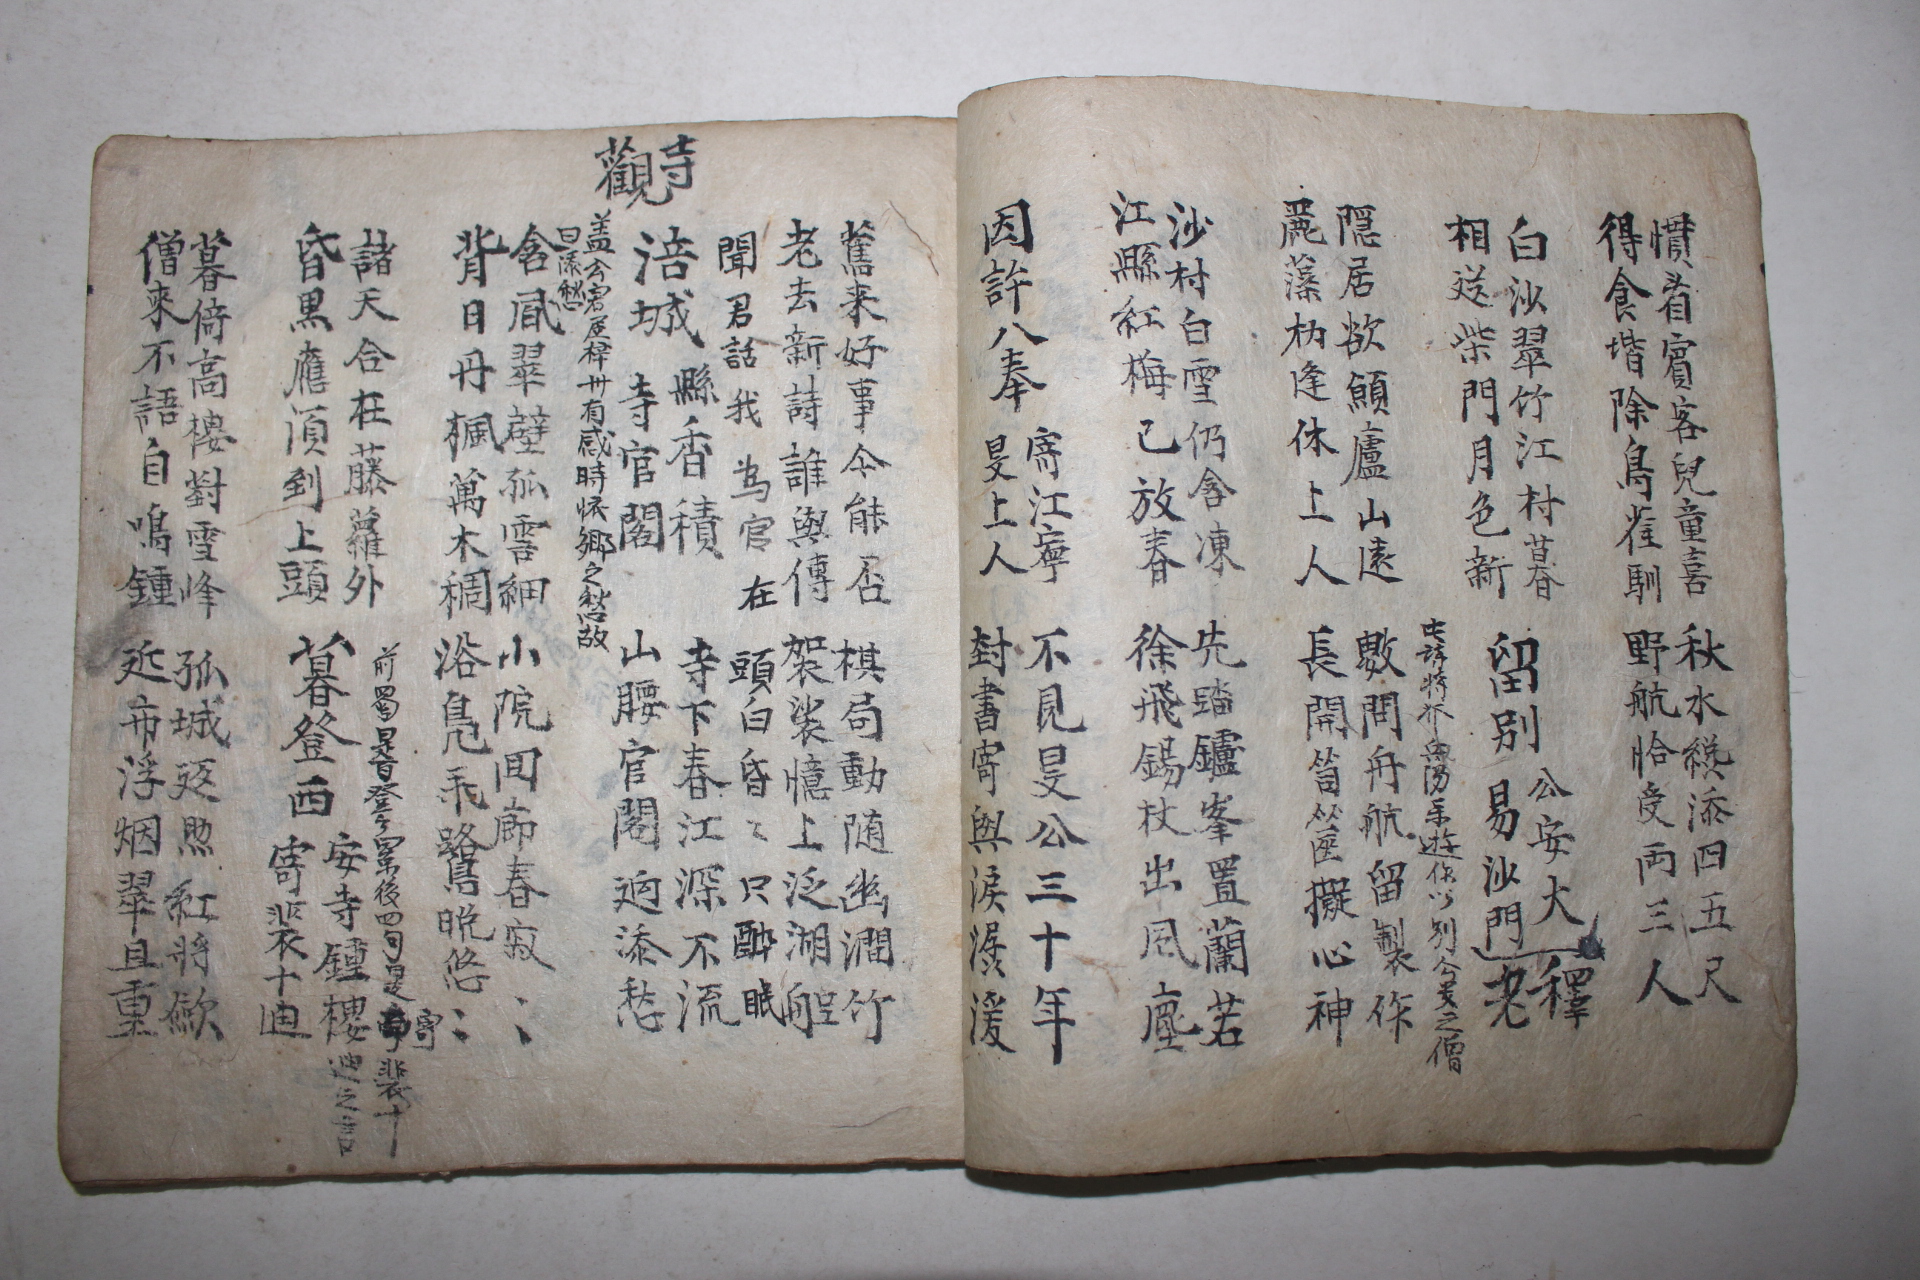 慣看賓客兒童喜
得食堦除鳥雀馴
秋水纔添四五尺
野航恰受兩三人
白沙翠竹江村暮
相送柴門月色新
留別公安大易沙門
釋老
此詩將於岳陽東遊作以別公安之僧
隠居欲願廬山遠
麗藻初逢休上人
數問舟航留製作
長開篋擬心神
沙村白雪仍含凍
江縣紅梅已放春
先踏鑪峯置蘭若
徐飛錫杖出風塵
因許八奉寄江寧旻上人
不見旻公三十年
封書寄與淚潺湲
舊来好事今能否
老去新詩誰與傳
棋局動随幽澗竹
袈裟憶上泛湖舡
聞君話我為官在
頭白昏〻只醉眠
寺觀
涪城縣香積寺官閣
寺下春江深不流
山腰官閣逈添愁
盖公寓居梓州有感時懐鄉之愁故曰添愁
含風翠壁孤雲細
背日丹楓萬木稠
小院回廊春寂〻
浴鳬飛鷺晩悠〻
諸天合在藤蘿外
昏黑應湏到上頭
暮登西安寺鍾樓寄裴十迪
前是昔登今後四句是寄裴十迪之言
暮倚高樓對雪峰
僧來不語自鳴鍾
孤城返照紅將歛
近市浮烟翠且重